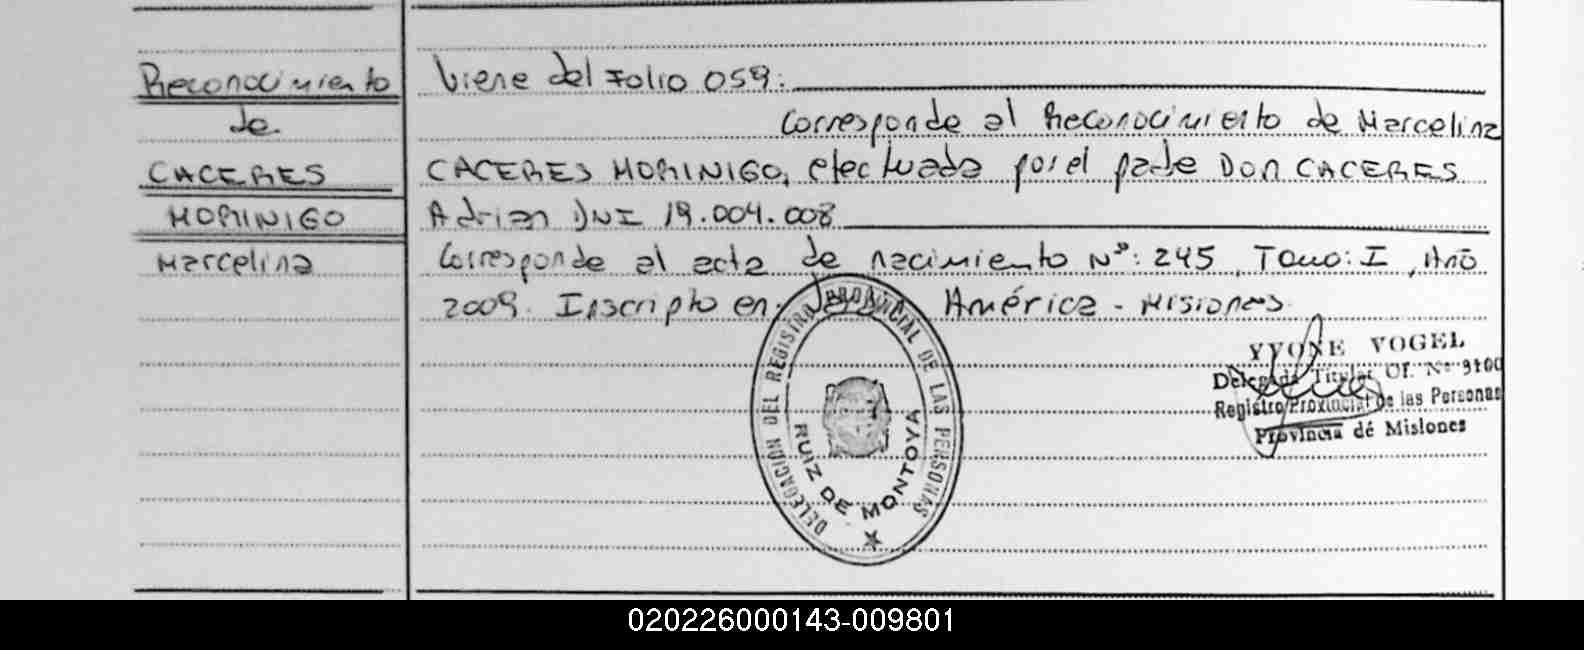 Reconocimiento
de
CACERES
MORINIGO
Marcelina
Viene del Folio 059:
Corresponde al Reconocimiento de Marcelina
CACERES MORINIGO, efectuada por el padre Don CACERES
Adrian DNI 19.004.008
Corresponde al acta de nacimiento Nº: 245, Tomo: I, Año
2009. Inscripto en: América - Misiones
DELEGACION DEL REGISTRO PROVINCIAL DE LAS PERSONAS
RUIZ DE MONTOYA
YVONE VOGEL
Delegada Titular Of. Nº 9100
Registro Provincial de las Personas
Provincia dé Misiones
020226000143-009801